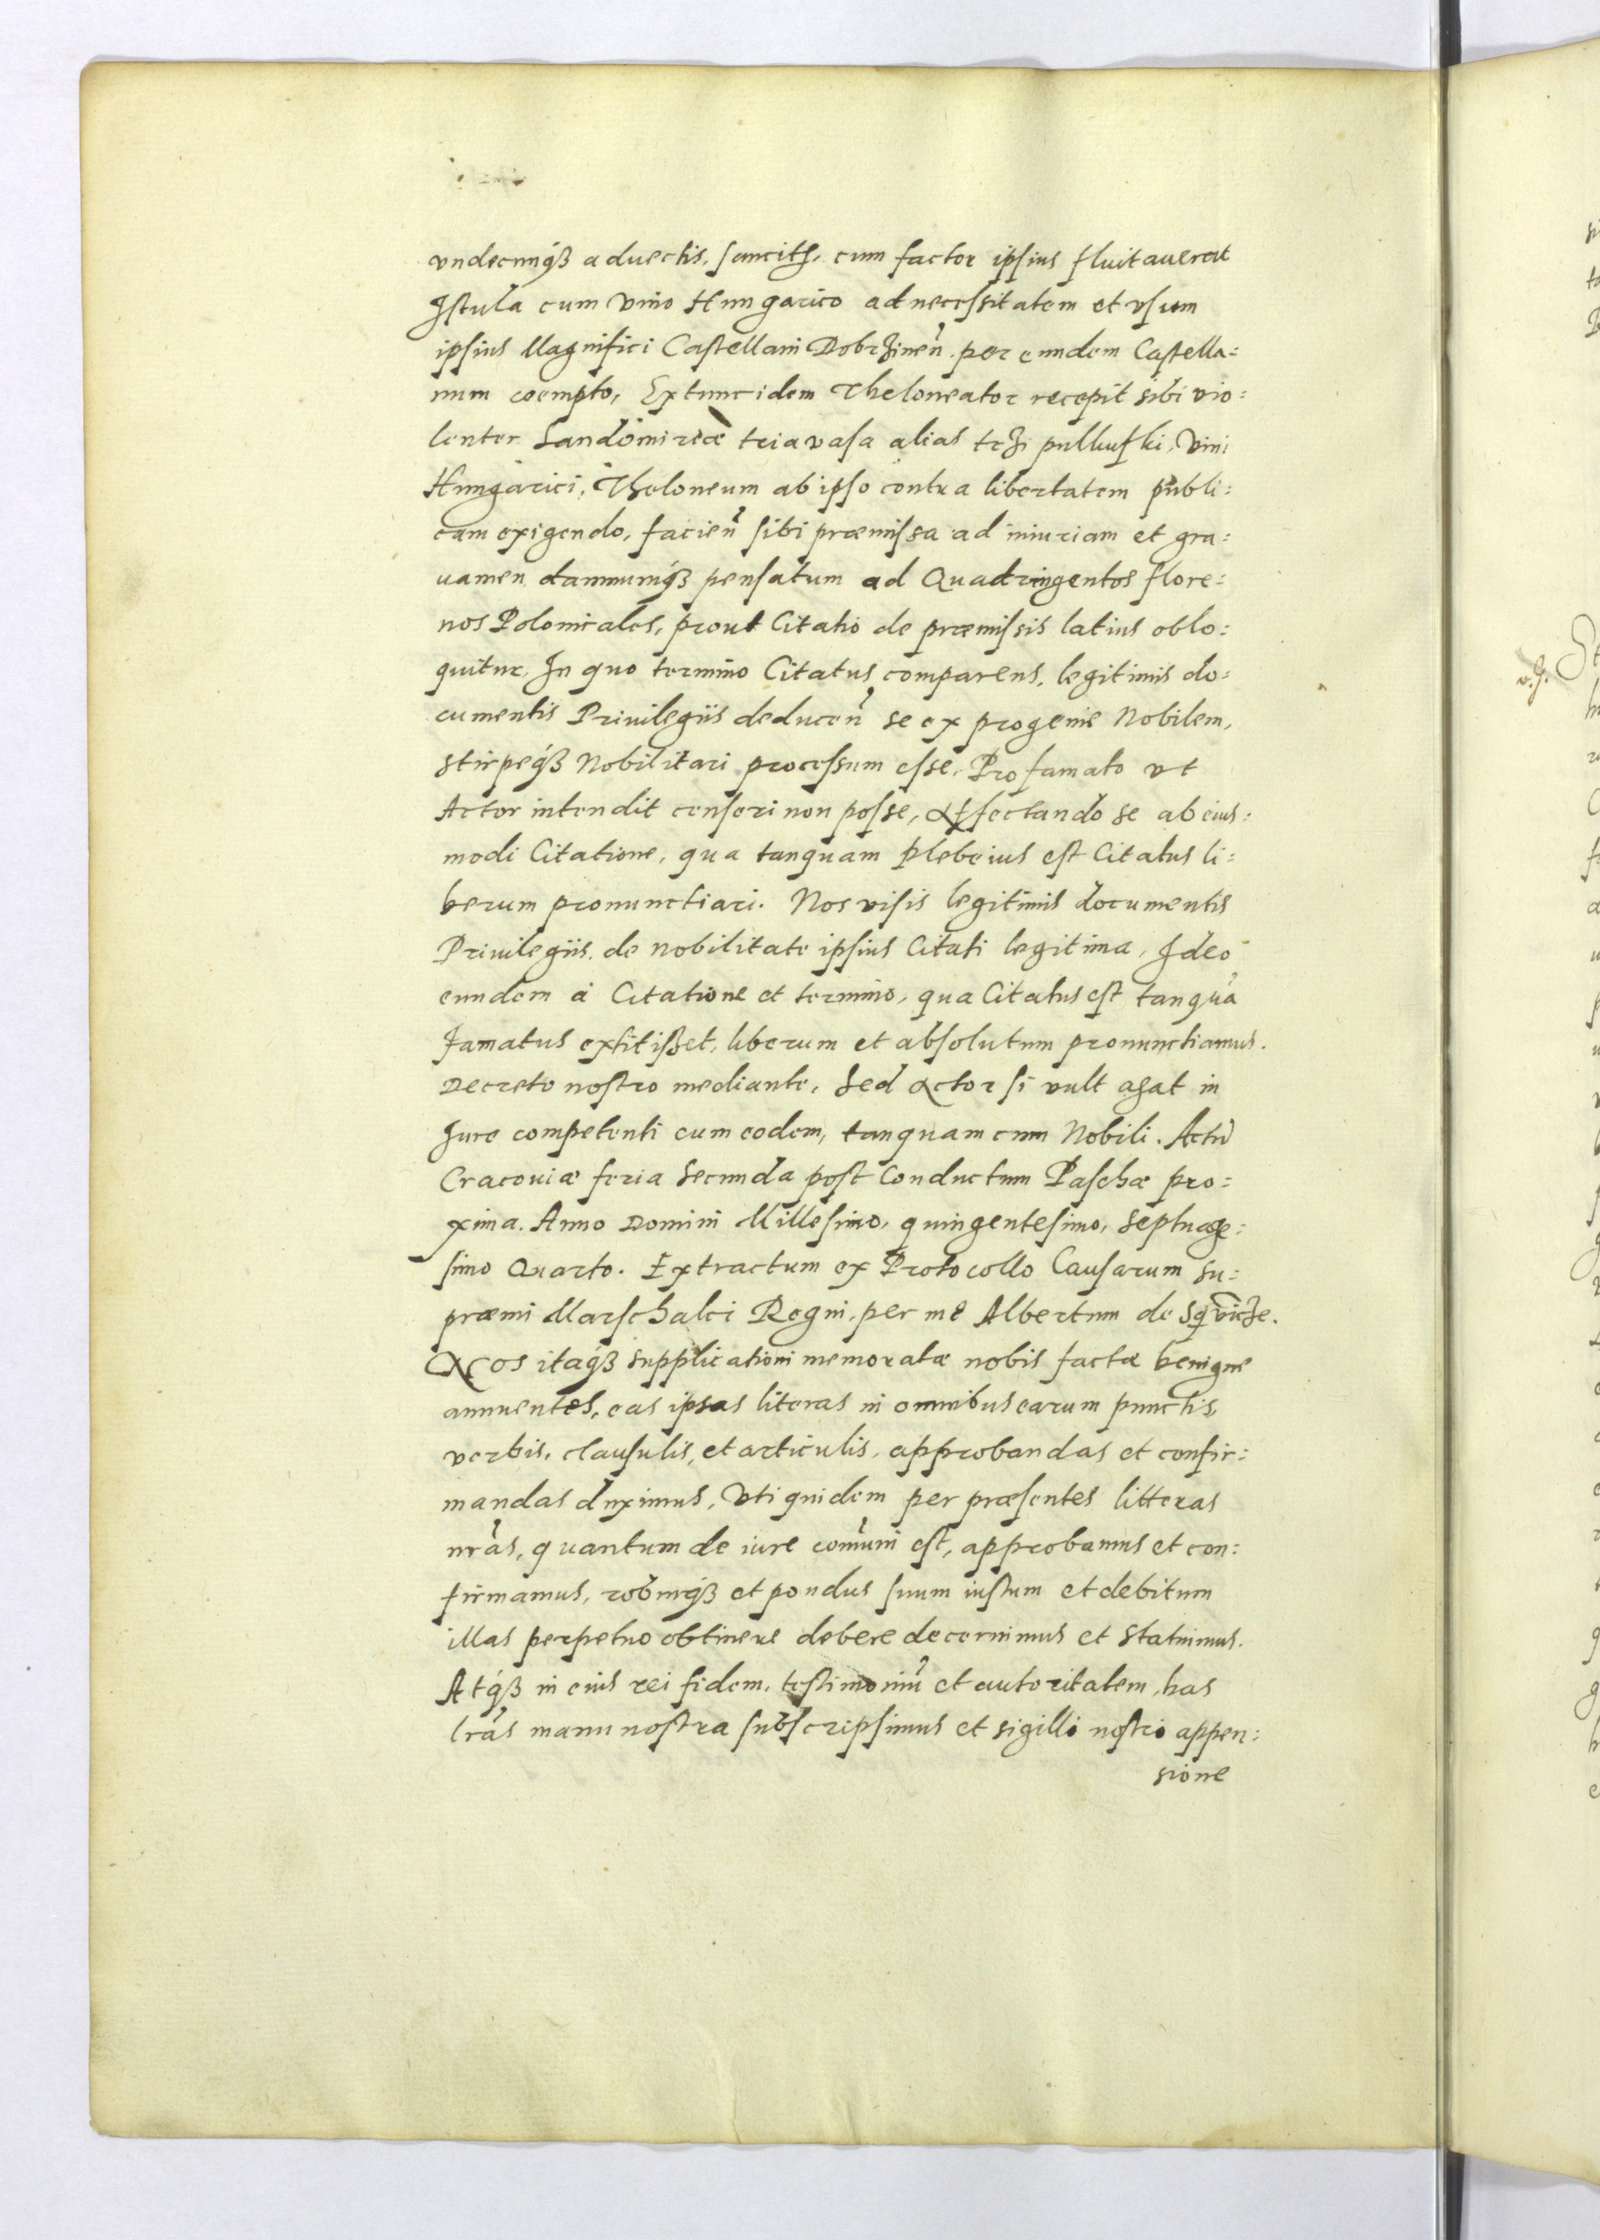 vndecunq́ꝫ aduectis, sancitꝭ, cum factor ipsius fluitauerat
Istula cum vino Hungarico ad necessitatem et vsum
ipsius Magnifici Castellani Dobrzinen̄ per eundem Castella:
num coempto, Extunc idem Theloneator recepit sibi vio:
lenter Sandomiriæ tria vasa alias trzi pulkufki, Vini
Hungarici, Theloneum ab ipso contra libertatem publi:
cam exigendo, facien̄ sibi præmissa ad iniuriam et gra:
uamen damnumq́ꝫ pensatum ad Quadringentos flore:
nos Polonicales, prout Citatio de præmissis latius oblo:
quitur, In quo termino Citatus comparens, legitimis do:
cumentis Priuilegiis deducen̄ se ex progenie Nobilem,
stirpeq́ꝫ Nobilitari processum esse, Pro famato vt
Actor intendit censeri non posse, Affectando se ab eius:
modi Citatione, qua tanquam plebeius est Citatus li:
berum pronunctiari. Nos visis legitimis documentis
Priuilegiis, de nobilitate ipsius Citati legitima, Ideo
eundem à Citatione et termino, qua Citatus est tanquā
famatus extitisset, liberum et absolutum pronunctiamus.
Decreto nostro mediante, Sed Actor si vult agat in
Iure competenti cum eodem, tanquam cum Nobili. Actū
Cracouiæ feria Secunda post Conductum Paschæ pro:
xima. Anno Domini Millesimo, quingentesimo, Septuage:
simo Quarto. Extractum ex Protocollo Causarum Su:
præmi Marschalci Regni, per me Albertum de
Nos itaq́ꝫ supplicationi memoratæ nobis factæ benigne
annuentes, eas ipsas literas in omnibus earum punctis,
verbis, clausulis, et articulis, approbandas et confir:
mandas duximus, Vti quidem per præsentes litteras
nr̄as, quantum de iure com̄uni est, approbamus et con:
firmamus, roburq́ꝫ et pondus suum iustum et debitum
illas perpetuo obtinere debere decernimus et statuimus.
Atq́ꝫ in eius rei fidem, testimoniū et autoritatem, has
lr̄as manu nostra subscripsimus et sigilli nostri appen:
sione